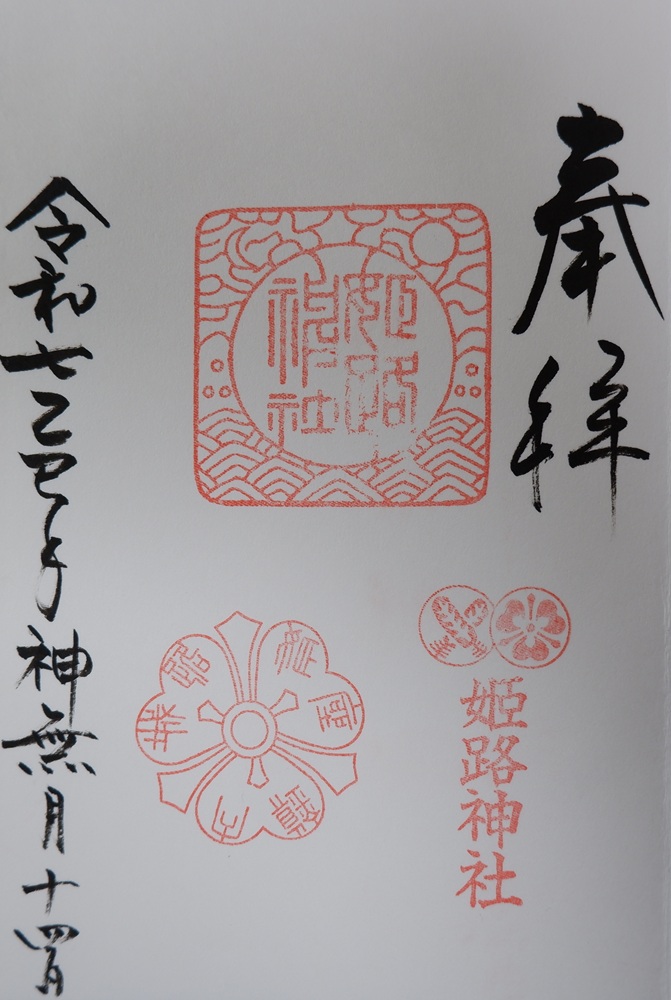 奉拝
姫路
神社
姫路神社
令和七乙巳年神無月十四日